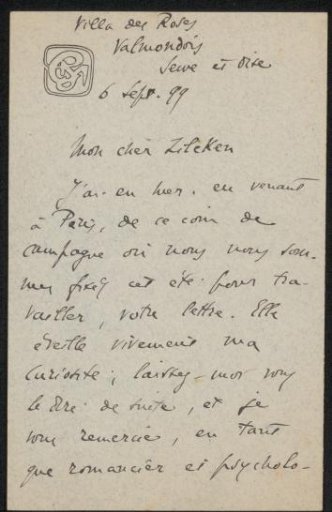 Villa des Roses
Valmondois
Seine et Oise
6 Sept. 99
Mon cher Zilcken
J'ai eu hier, en venant
à Paris, de ce coin de
campagne où nous nous som-
mes fixés cet été pour tra-
vailler, votre lettre. Elle
éveille vivement ma
curiosité; laissez-moi vous
le dire de suite, et je
vous remercie, en tant
que romancier et psycholo-